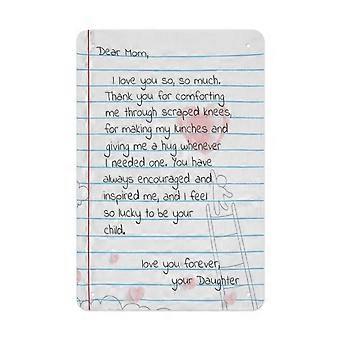 Dear Mom,
I love you so, so much.
Thank you for comforting
me through scraped knees,
for making my lunches and
giving me a hug whenever
I needed one. You have
always encouraged and
inspired me, and I feel
so lucky to be your
child.
love you forever,
your Daughter